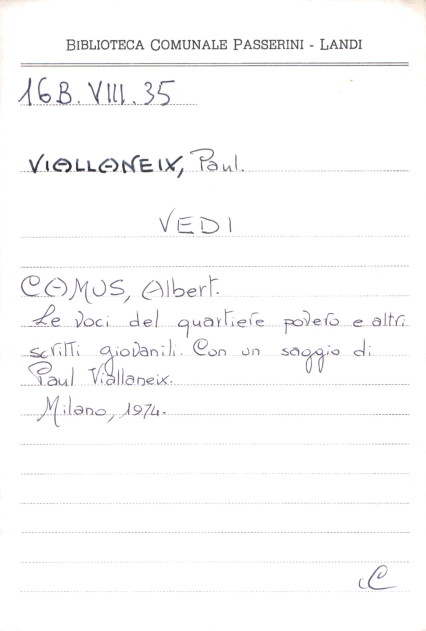 BIBLIOTECA COMUNALE PASSERINI - LANDI
16B. VIII. 35
VIALLANEIX, Paul.
VEDI
CAMUS, Albert.
Le voci del quartiere povero e altri
scritti giovanili. Con un saggio di
Paul Viallaneix.
Milano, 1974.
C